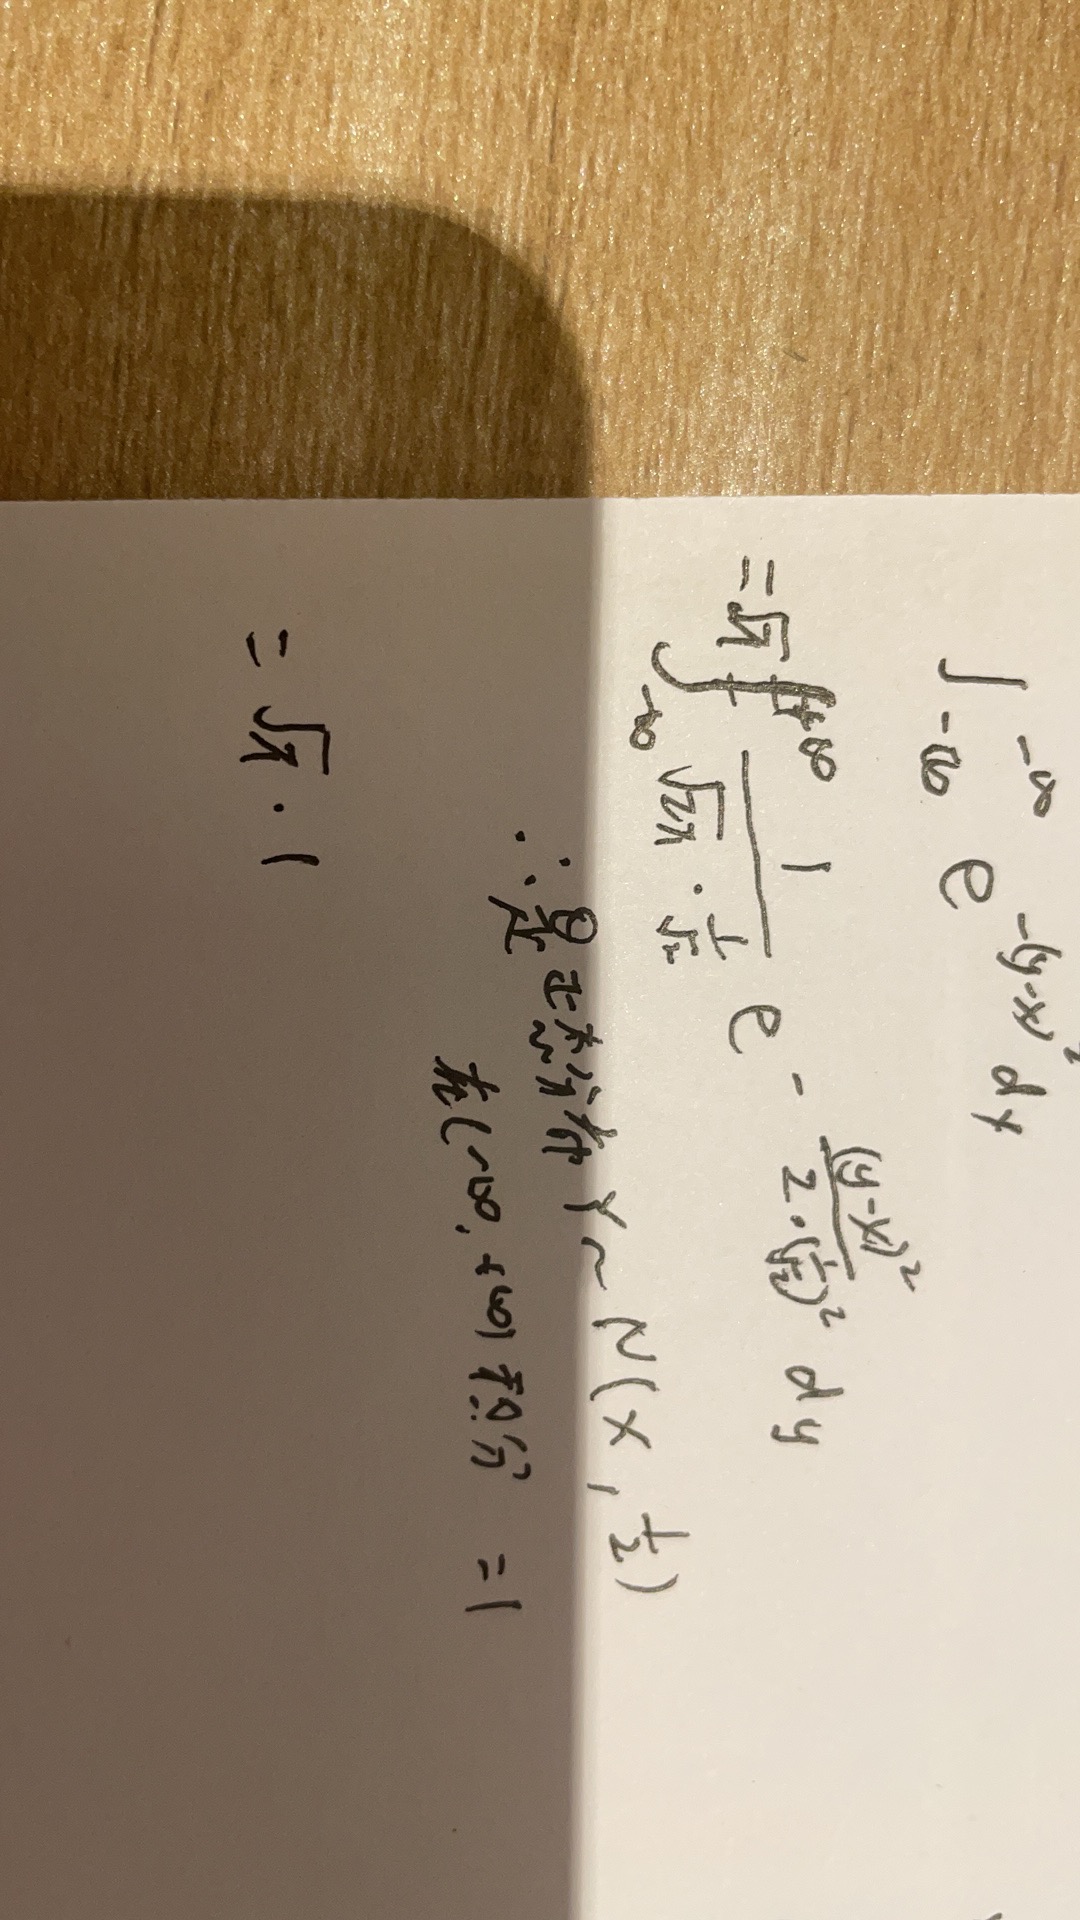 ∫_{-∞}^{-∞} e^{-(y-x)^2} dy
= √π ∫_{-∞}^{+∞} \frac{1}{√2π · \frac{1}{√2}} e^{-\frac{(y-x)^2}{2·(\frac{1}{√2})^2}} dy
∴ 是正态分布 Y ~ N(x, \frac{1}{2})
在(-∞, +∞) 积分 = 1
= √π · 1